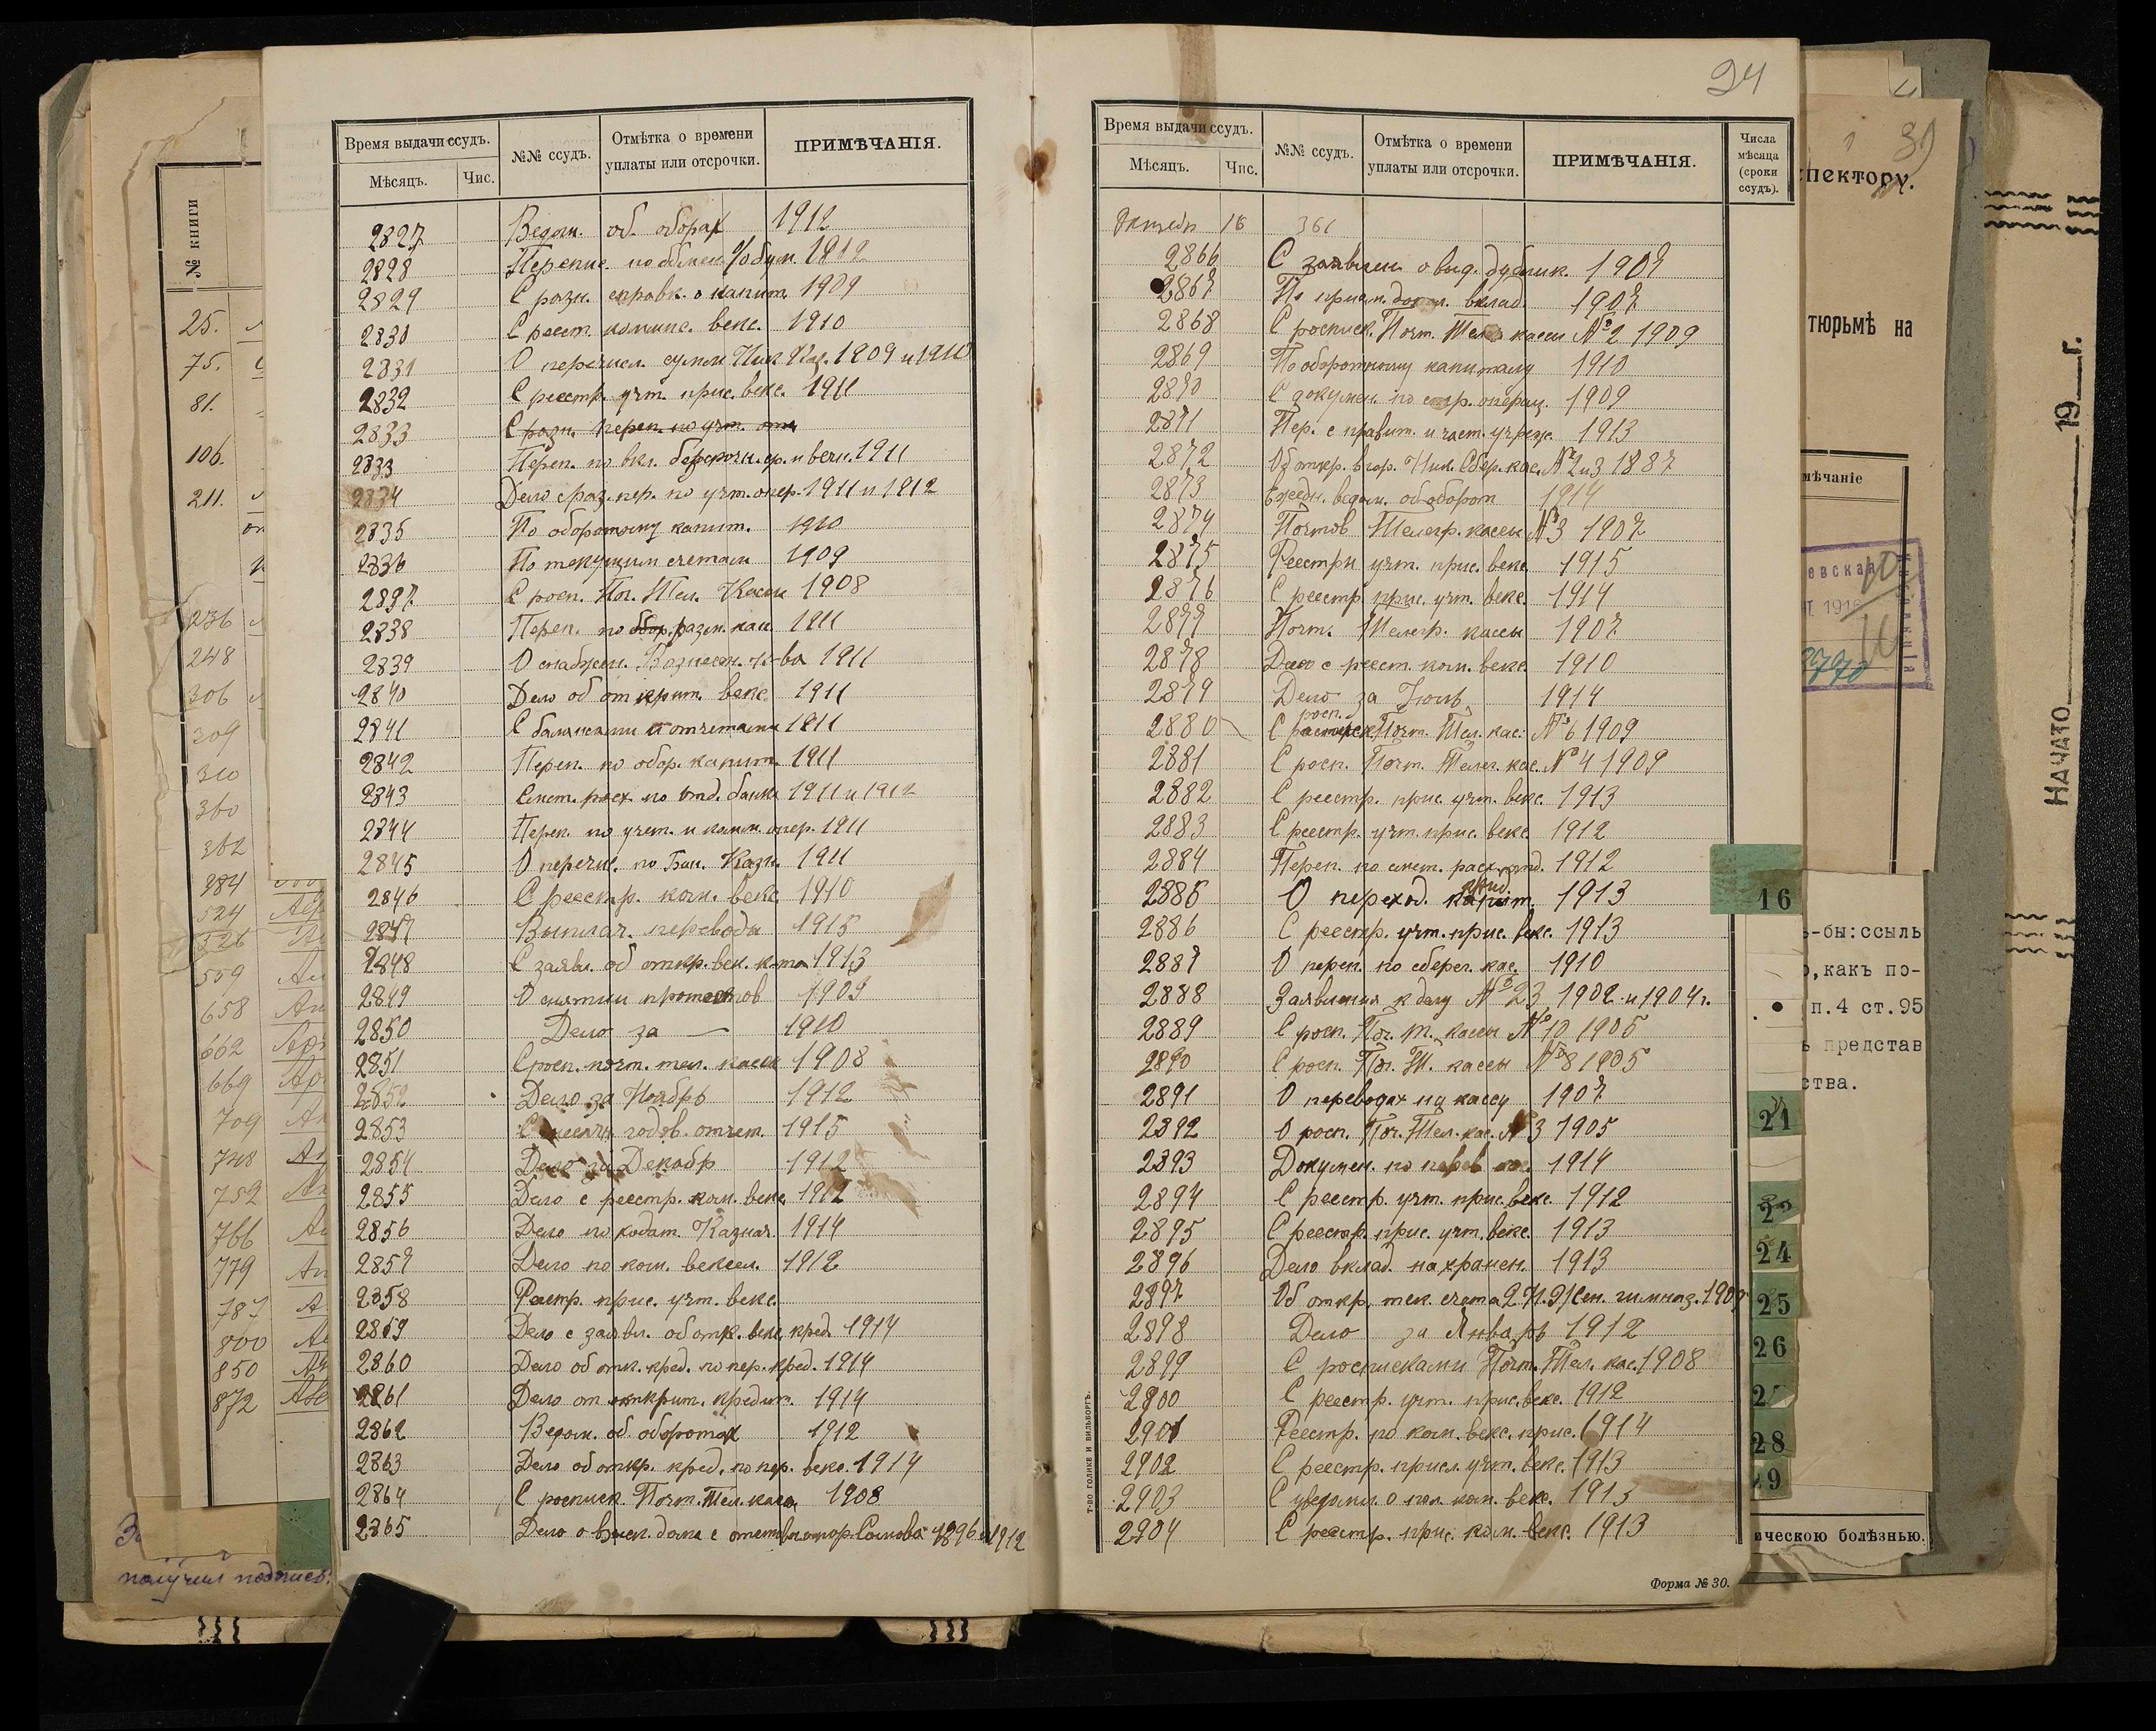 № книги
25.
75.
81.
106.
211.
236
248
306
309
310
360
362
384
524
526
559
658
662
669
709
748
752
766
779
787
800
850
872
получил подпись:
Время выдачи ссудъ.
Мѣсяцъ.
Чис.
№№ ссудъ.
Отмѣтка о времени
уплаты или отсрочки.
ПРИМѢЧАНІЯ.
2827 Ведом. об оборах 1912
2828 Перепис. по обмен. % бум. 1912
2829 С разн. справк. о капит. 1909
2830 С реест. комис. векс. 1910
2831 О перечисл. сумм Ник. Каз. 1909 и 1910
2832 С реестр. учт. прис. векс. 1911
2833 С разн. переп. по учт. опе
2833 Переп. по вкл. бессрочн. ср. и вечн. 1911
2834 Дело с раз. пер. по учт. опер. 1911 и 1912
2835 По оборотному капит. 1910
2836 По текущим счетам 1909
2837 С росп. По. Тел. Кассы 1908
2838 Переп. по обор. разм. кап. 1911
2839 О снабжен. Вознесен. к-ва 1911
2840 Дело об открыт. векс. 1911
2841 С балансами и отчетами 1911
2842 Переп. по обор. капит. 1911
2843 Смет. расх. по отд. банка 1911 и 1912
2844 Переп. по учет. и комм. опер. 1911
2845 О перечис. по Бан. Казн. 1911
2846 С реестр. ком. векс. 1910
2847 Выплач. переводы 1915
2848 С заявл. об откр. век. к-та 1913
2849 О снятии протестов 1909
2850 Дело за — 1910
2851 С росп. почт. тел. кассы 1908
2852 Дело за Ноябрь 1912
2853 С месячн. годов. отчет. 1915
2854 Дело за Декабр 1912
2855 Дело с реестр. ком. векс. 1912
2856 Дело по ходат. Казнач. 1914
2857 Дело по ком. вексел. 1912
2858 Реестр. прис. учт. векс.
2859 Дело с заявл. об отк. векс. кред. 1914
2860 Дело об отк. кред. по пер. кред. 1914
2861 Дело от открыт. кредит. 1914
2862 Ведом. об оборотах 1912
2863 Дело об откр. кред. по пер. векс. 1914
2864 С росписк. Почт. Тел. касс. 1908
2865 Дело о взыск. долга с Сомова 1896 и 1912
24
Время выдачи ссудъ.
Мѣсяцъ.
Чис.
№№ ссудъ.
Отмѣтка о времени
уплаты или отсрочки.
ПРИМѢЧАНІЯ.
Числа
мѣсяца
(сроки
ссудъ).
Октябр 18 361
2866 С заявлен. о выд. дублик. 1907
2867 По прием. вклад. 1907
2868 С росписк. Почт. Телег. кассы № 2 1909
2869 По оборотному капиталу 1910
2870 С докумен. по стр. операц. 1909
2871 Пер. с правит. и част. учреж. 1913
2872 Об откр. в гор. Ник. Сбер. кас. № 2 и 3 1887
2873 Ежедн. ведом. об оборот 1914
2874 Почтов Телегр. кассы № 3 1907
2875 Реестры учт. прис. векс. 1915
2876 С реестр прис. учт. векс. 1914
2877 Почт. Телегр. кассы 1907
2878 Дело с реест. ком. векс. 1910
2879 Дело за Июль 1914
2880 С росп. Почт. Тел. кас. № 6 1909
2881 С росп. Почт. Телег. кас. № 4 1909
2882 С реестр. прис. учт. векс. 1913
2883 С реестр. учт. прис. векс. 1912
2884 Переп. по смет. расх. отд. 1912
2885 О переход. капит. 1913
2886 С реестр. учт. прис. векс. 1913
2887 О переп. по сберег. кас. 1910
2888 Заявления к делу № 23 1902 и 1904 г.
2889 С росп. По. Т. кассы № 10 1905
2890 С росп. По. Т. кассы № 8 1905
2891 О переводах на кассу 1907
2892 О росп. По. Тел. кас. № 3 1905
2893 Докумен. по перев. 1914
2894 С реестр. учт. прис. векс. 1912
2895 С реестр. прис. учт. векс. 1913
2896 Дело вклад. на хранен. 1913
2897 Об откр. тек. счета 2 Н. Жен. гимназ. 1907
2898 Дело за Январь 1912
2899 С росписками Почт. Тел. кас. 1908
2900 С реестр. учт. прис. векс. 1912
2901 Реестр. по ком. векс. прис. 1914
2902 С реестр. присл. учт. векс. 1913
2903 С уведомл. о пол. ком. векс. 1913
2904 С реестр. прис. ком. векс. 1913
Т-ВО ГОЛИКЕ И ВИЛЬБОРГЪ.
Форма № 30.
16
21
24
25
26
28
29
пектору.
тюрьмѣ на
мѣчаніе
евская
ь-бы:ссыль
,какъ по-
п.4 ст.95
ь представ
ства.
ическою болѣзнью.
НАЧАТО 19 г.